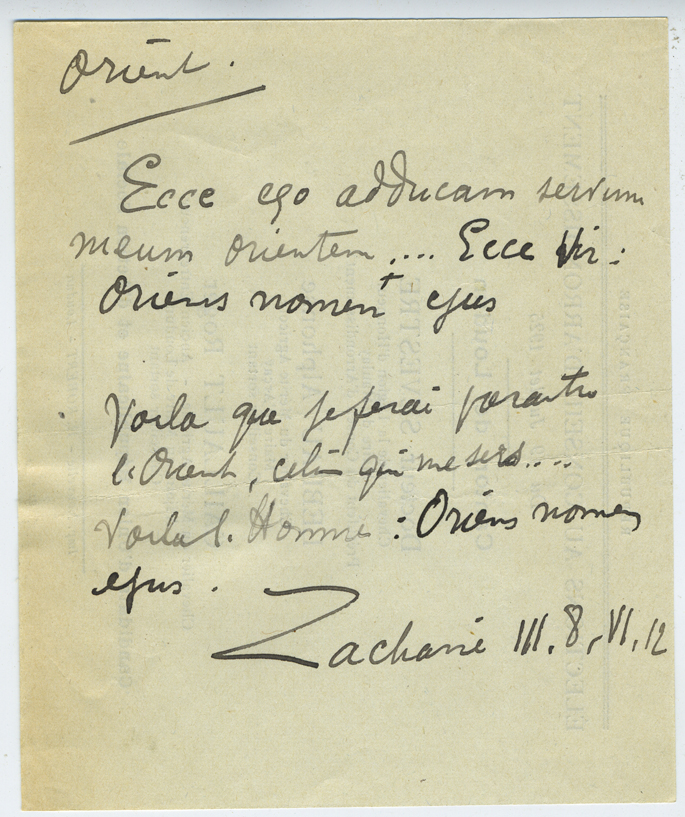 Orient.
Ecce ego adducam servum
meum orientem .... Ecce Vir :
Oriens nomen ejus
Voila que je ferai paraitre
l'Orient, celui qui me sers....
Voila l'Homme : Oriens nomen
ejus .
Zacharie III. 8, VI, 12